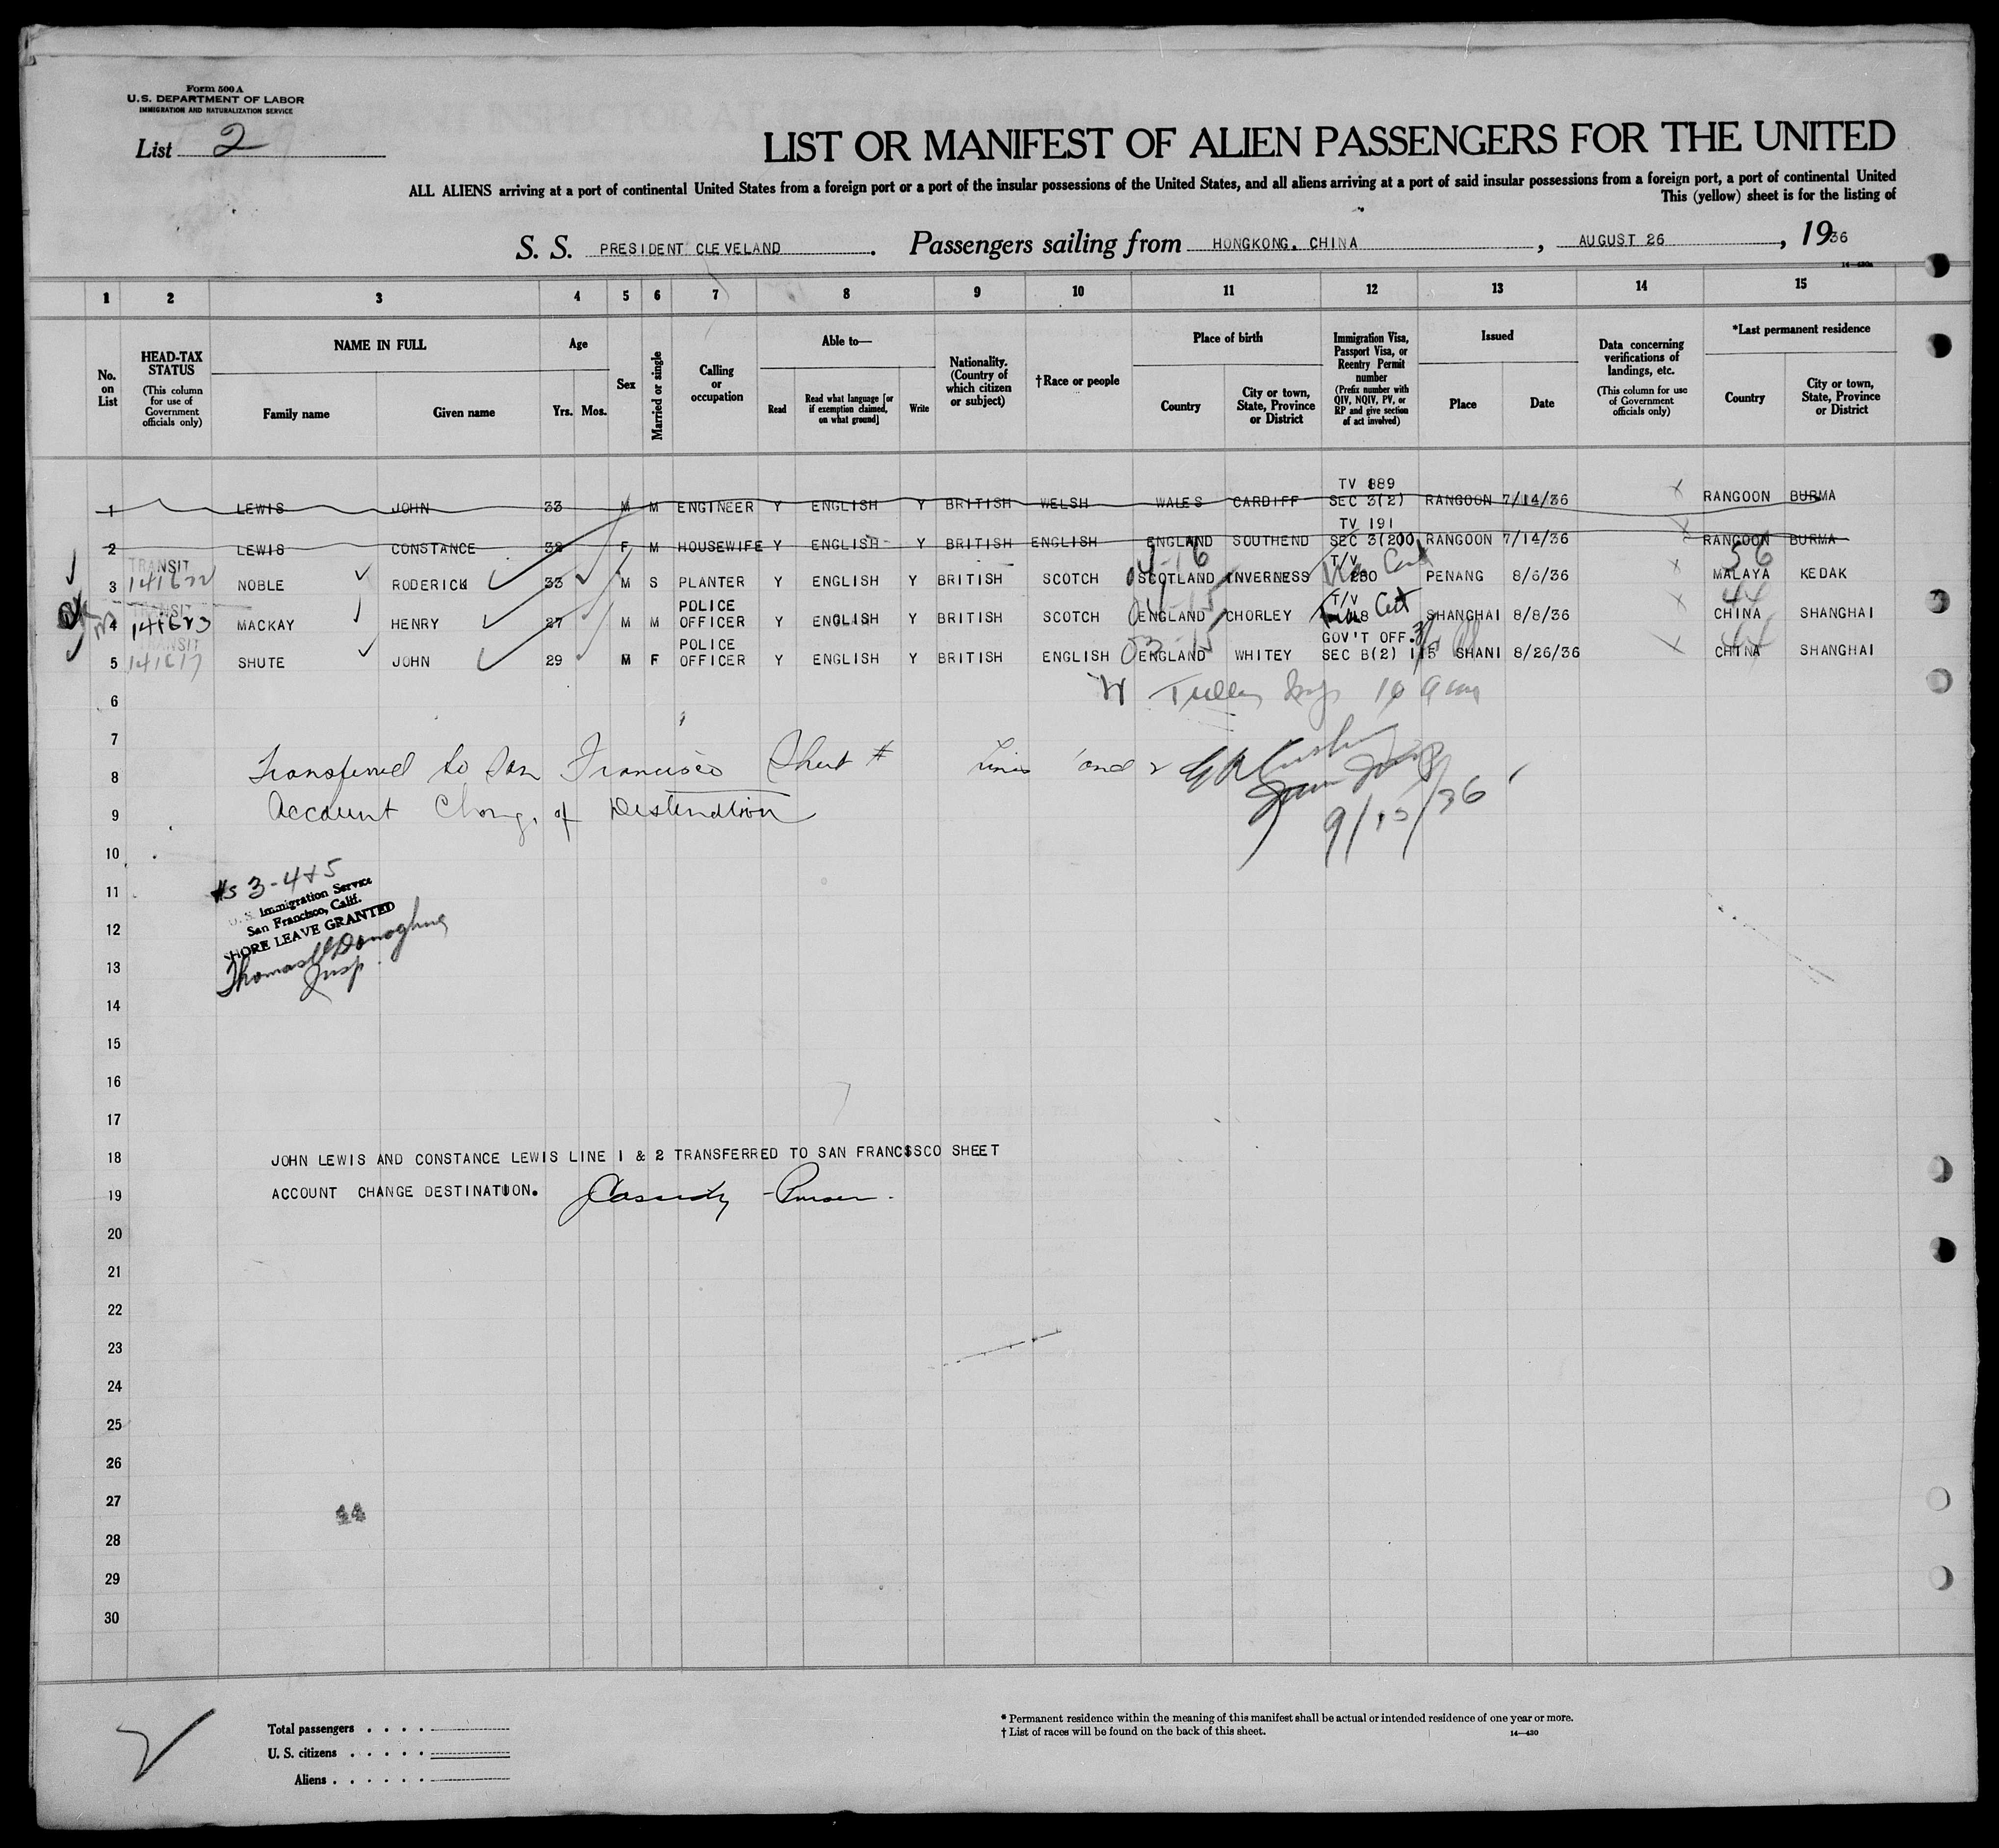 Form 500 A
U.S. DEPARTMENT OF LABOR
IMMIGRATION AND NATURALIZATION SERVICE
List 2
LIST OR MANIFEST OF ALIEN PASSENGERS FOR THE UNITED
ALL ALIENS arriving at a port of continental United States from a foreign port or a port of the insular possessions of the United States, and all aliens arriving at a port of said insular possessions from a foreign port, a port of continental United
This (yellow) sheet is for the listing of
S. S. PRESIDENT CLEVELAND. Passengers sailing from HONGKONG. CHINA, AUGUST 26, 1936
1 2 3 4 5 6 7 8 9 10 11 12 13 14 15
No. on List
HEAD-TAX STATUS (This column for use of Government officials only)
NAME IN FULL
Family name
Given name
Age
Yrs. Mos.
Sex
Married or single
Calling or occupation
Able to—
Read
Read what language [or if exemption claimed, on what ground]
Write
Nationality. (Country of which citizen or subject)
†Race or people
Place of birth
Country
City or town, State, Province or District
Immigration Visa, Passport Visa, or Reentry Permit number (Prefix number with QIV, NQIV, PV, or RP and give section of act involved)
Issued
Place
Date
Data concerning verifications of landings, etc. (This column for use of Government officials only)
*Last permanent residence
Country
City or town, State, Province or District
TV 889
1 LEWIS JOHN 33 M M ENGINEER Y ENGLISH Y BRITISH WELSH WALES CARDIFF SEC 3(2) RANGOON 7/14/36 RANGOON BURMA
TV 191
2 LEWIS CONSTANCE F M HOUSEWIFE Y ENGLISH Y BRITISH ENGLISH ENGLAND SOUTHEND RANGOON 7/14/36 RANGOON BURMA
TRANSIT T/V 56
3 NOBLE RODERICK 33 M S PLANTER Y ENGLISH Y BRITISH SCOTCH SCOTLAND INVERNESS PENANG 8/6/36 MALAYA KEDAK
TRANSIT POLICE T/V 44
4 MACKAY HENRY 27 M M OFFICER Y ENGLISH Y BRITISH SCOTCH ENGLAND CHORLEY SHANGHAI 8/8/36 CHINA SHANGHAI
TRANSIT POLICE GOV'T OFF. 44
5 SHUTE JOHN 29 M F OFFICER Y ENGLISH Y BRITISH ENGLISH ENGLAND WHITEY SEC B(2) SHANI 8/26/36 CHINA SHANGHAI
6
7
8 Transferred to San Francisco Sheet #
9 Account Change of Destination
9/15/36
10
#s 3-4+5
11
U. S. Immigration Service
San Francisco, Calif.
12
SHORE LEAVE GRANTED
Insp.
13
14
15
16
17
18 JOHN LEWIS AND CONSTANCE LEWIS LINE 1 & 2 TRANSFERRED TO SAN FRANC$SCO SHEET
19 ACCOUNT CHANGE DESTINATION. Cassidy - Purser.
20
21
22
23
24
25
26
27
44
28
29
30
Total passengers
U. S. citizens
Aliens
* Permanent residence within the meaning of this manifest shall be actual or intended residence of one year or more.
† List of races will be found on the back of this sheet.
14—430